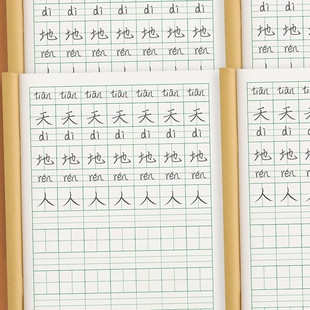 dì dì dì dì dì dì dì
地 地 地 地 地 地 地
rén rén rén rén rén rén rén
dì dì
地 地
rén rén
tiān tiān tiān tiān tiān tiān tiān
天 天 天 天 天 天 天
dì dì dì dì dì dì dì
地 地 地 地 地 地 地
rén rén rén rén rén rén rén
人 人 人 人 人 人 人
tiān tiān
天 天 天
dì dì dì
地 地 地
rén rén rén
人 人 人